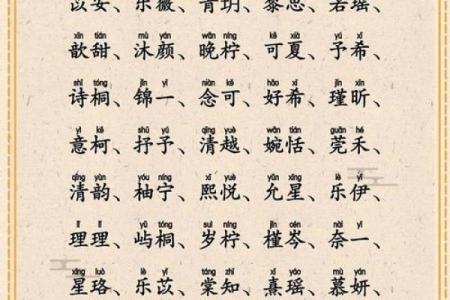 乐薇、青玥、若瑶、
xīn tián mù yán wǎn níng kě xià yú xī
歆甜、沐颜、晚柠、可夏、予希、
shī tóng jǐn yī niàn kě hǎo xī jǐn xīn
诗桐、锦一、念可、好希、瑾昕、
yì kē shū yú qīng yuè wǎn tián guān hé
意柯、抒予、清越、婉恬、莞禾、
qīng yùn yòu níng xī yuè yǔn xīng lè yī
清韵、柚宁、熙悦、允星、乐伊、
lǐ lǐ yǔ tóng suì níng jǐn cén nài yī
理理、屿桐、岁柠、槿岑、奈一、
xīng luò lè yǐ táng zhī xī yáo mù yán
星珞、乐苡、棠知、熹瑶、慕妍、